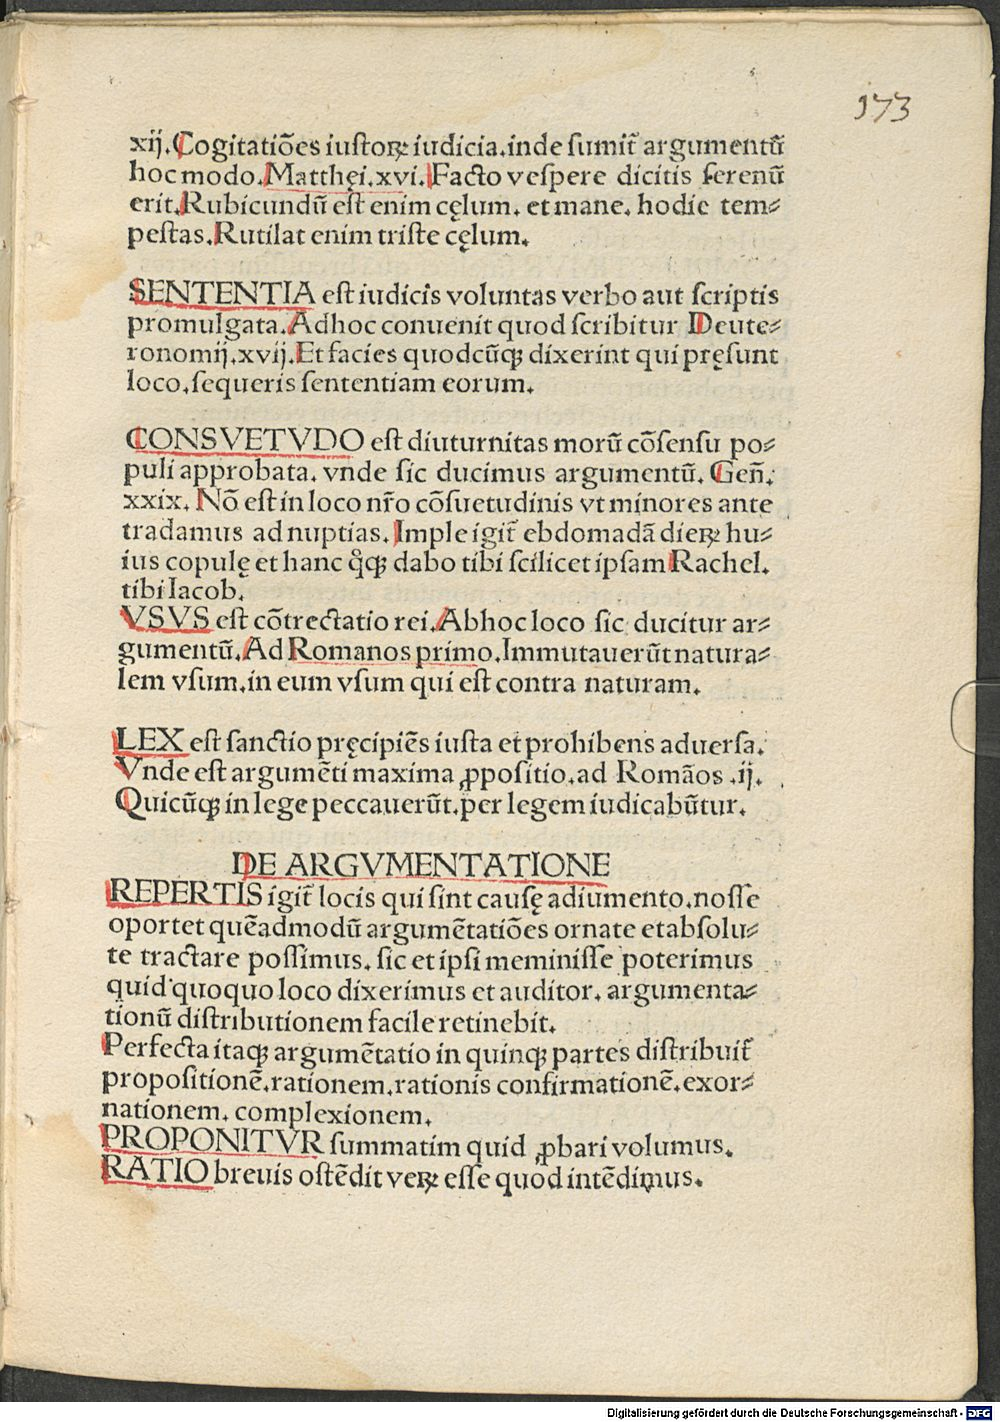 173
xij. Cogitatiões iustoꝝ iudicia. inde sumit᷑ argumentū
hoc modo. Matthęi. xvi. Facto vespere dicitis serenū
erit. Rubicundū est enim cęlum. et mane. hodie tem⸗
pestas. Rutilat enim triste cęlum.
SENTENTIA est iudicis voluntas verbo aut scriptis
promulgata. Adhoc conuenit quod scribitur Deute⸗
ronomij. xvij. Et facies quodcūqꝫ dixerint qui pręsunt
loco. sequeris sententiam eorum.
CONSVETVDO est diuturnitas morū cõsensu po⸗
puli approbata. vnde sic ducimus argumentū. Geñ.
xxix. Nõ est in loco nr̃o cõsuetudinis vt minores ante
tradamus ad nuptias. Imple igit᷑ ebdomadã dieꝝ hu⸗
ius copulę et hanc qͦqꝫ dabo tibi scilicet ipsam Rachel.
tibi Iacob.
VSVS est cõtrectatio rei. Abhoc loco sic ducitur ar⸗
gumentū. Ad Romanos primo. Immutauerūt natura⸗
lem vsum. in eum vsum qui est contra naturam.
LEX est sanctio pręcipiẽs iusta et prohibens aduersa.
Vnde est argumẽti maxima ꝓpositio. ad Romãos .ij.
Quicūqꝫ in lege peccauerūt. per legem iudicabūtur.
DE ARGVMENTATIONE
REPERTIS igit᷑ locis qui sint causę adiumento. nosse
oportet quẽadmodū argumẽtatiões ornate et absolu⸗
te tractare possimus. sic et ipsi meminisse poterimus
quid quoquo loco dixerimus et auditor. argumenta⸗
tionū distributionem facile retinebit.
Perfecta itaqꝫ argumẽtatio in quinqꝫ partes distribuit᷑
propositionẽ. rationem. rationis confirmationẽ. exor⸗
nationem. complexionem.
PROPONITVR summatim quid ꝓbari volumus.
RATIO breuis ostẽdit veꝝ esse quod intẽdimus.
Digitalisierung gefördert durch die Deutsche Forschungsgemeinschaft - DFG